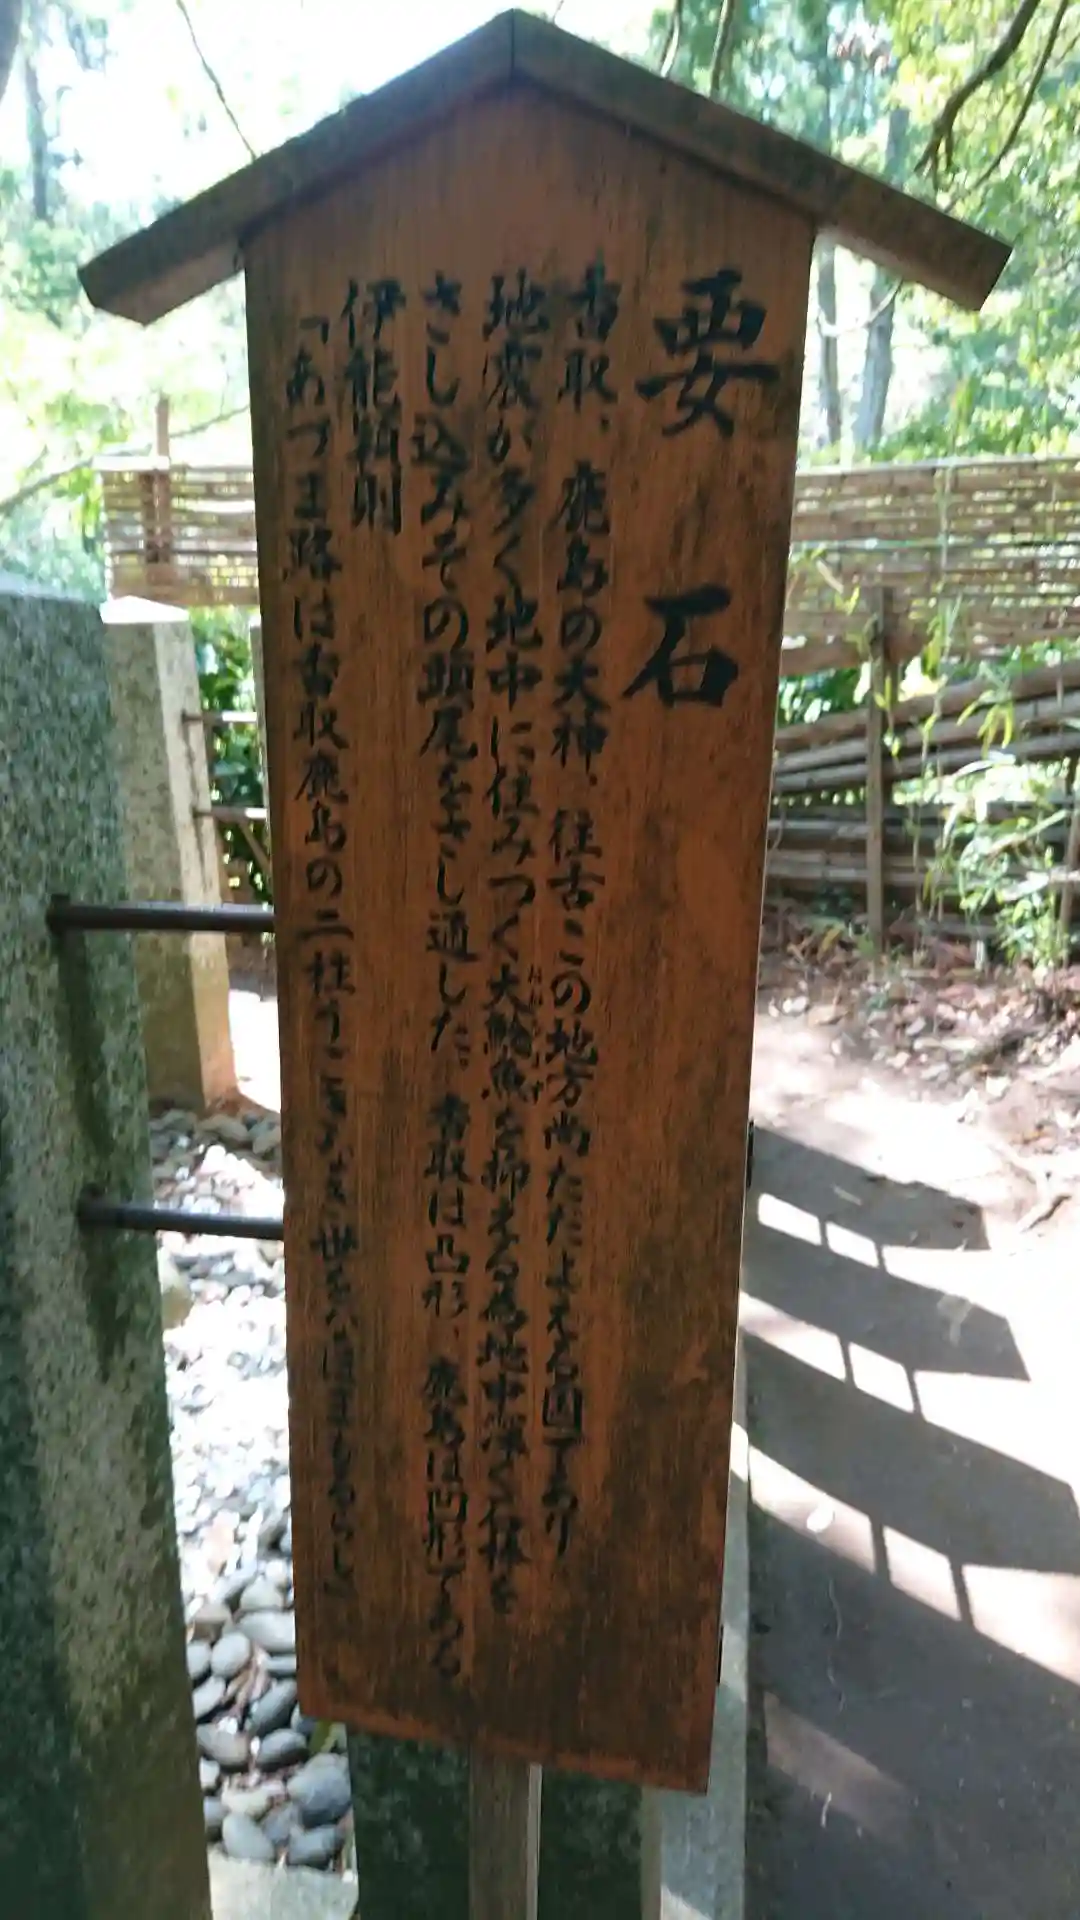 要石
香取、鹿島の大神、往古この地方尚たゞよえる国であり
地震が多く地中に住みつく大鯰魚を抑える為地中深く石棒を
さし込みその頭尾をさし通した。香取は凸形、鹿島は凹形である
伊能頴則
「あづま路は香取鹿島の二柱うごきなき世をなほまもるらし」